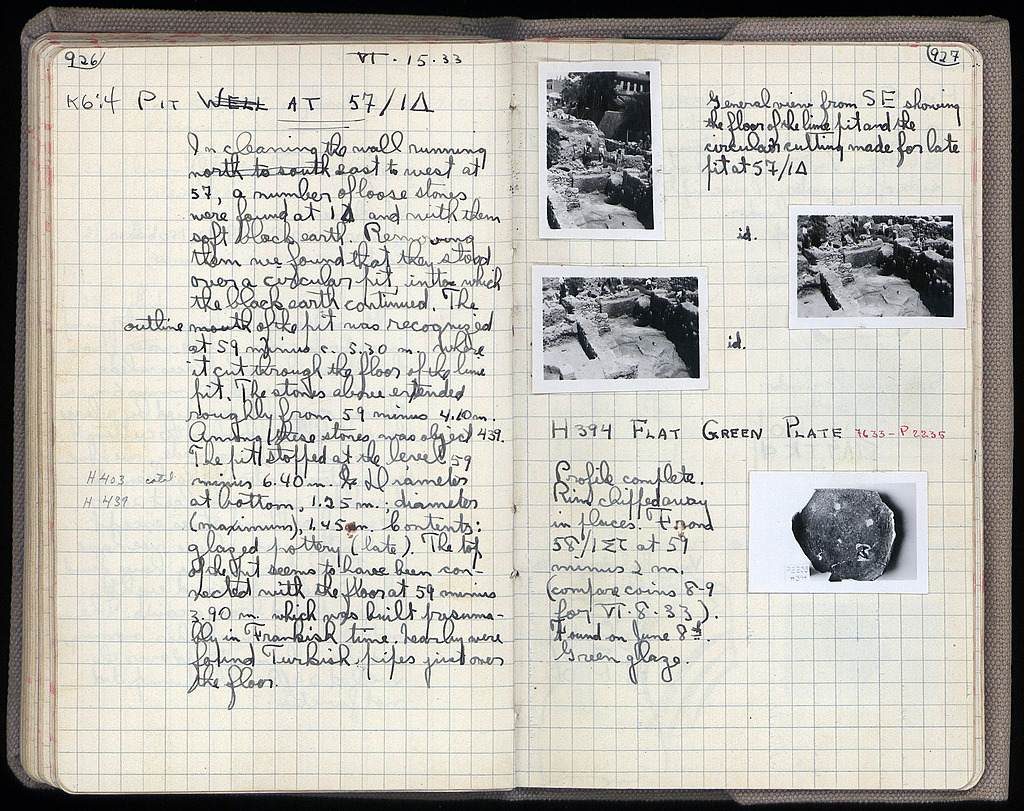 926
VI · 15 · 33
K614 PIT WELL AT 57/1Δ
In cleaning the wall running
north to south east to west at
57, a number of loose stones
were found at 1Δ and with them
soft black earth. Removing
them we found that they stood
over a circular pit, into which
the black earth continued. The
outline mouth of the pit was recognized
at 59 minus c. 5.30 m. where
it cut through the floor of the lime
pit. The stones above extended
roughly from 59 minus 4.10 m.
Among these stones was object 439.
The pit stopped at the level 59
minus 6.40 m. Diameter
at bottom, 1.25 m.; diameter
(maximum), 1.45 m. Contents:
glazed pottery (late). The top
of the pit seems to have been con-
nected with the floor at 59 minus
3.90 m. which was built presuma-
bly in Frankish time. Nearby were
found Turkish pipes just over
the floor.
H 403 catal
H 439
927
General view from SE showing
the floor of the lime pit and the
circular cutting made for late
pit at 57/1Δ
id.
id.
H 394 FLAT GREEN PLATE 7633-P 2235
Profile complete.
Rim chipped away
in places. From
58/1ΣΤ at 59
minus 2 m.
(compare coins 8-9
for VI · 8 · 33).
Found on June 8th.
Green glaze.